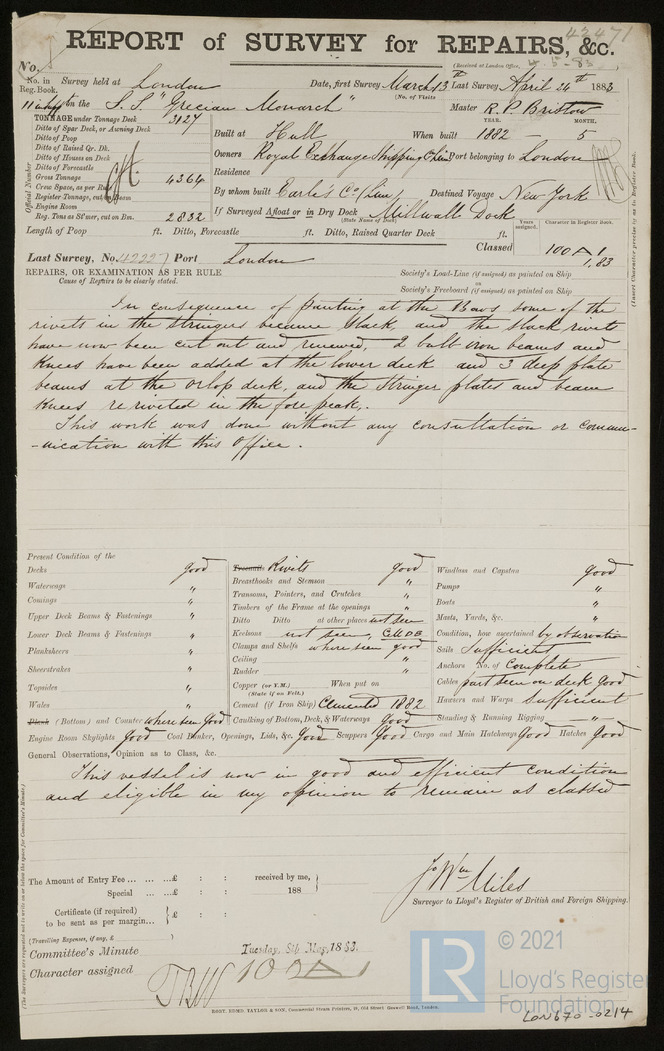 42471
REPORT of SURVEY for REPAIRS, &c.
(Received at London Office, 4-5-83)
No.
No. in Reg. Book.
Survey held at London Date, first Survey March 13th Last Survey April 24th 1883
(No. of Visits
on the S.S "Grecian Monarch" Master R. P. Bristow
TONNAGE under Tonnage Deck 3127
YEAR. MONTH.
Ditto of Spar Deck, or Awning Deck
Built at Hull When built 1882 — 5
Ditto of Poop
Ditto of Raised Qr. Dk.
Owners Royal Exchange Shipping Co Lim Port belonging to London
Ditto of Houses on Deck
Ditto of Forecastle
Residence
Gross Tonnage 4364
Crew Space, as per Rule
By whom built Earle's Co (Lim) Destined Voyage New York
Register Tonnage, cut on Beam
Engine Room
If Surveyed Afloat or in Dry Dock Millwall Dock
(State Name of Dock)
Reg. Tons as St'mer, cut on Bm. 2832
Official Number
Years assigned. Character in Register Book.
Length of Poop ft. Ditto, Forecastle ft. Ditto, Raised Quarter Deck ft.
Classed 100 A 1
1,83
Last Survey, No. 42227 Port London
(Insert Character precise by as in Register Book.
REPAIRS, OR EXAMINATION AS PER RULE
Cause of Repairs to be clearly stated.
Society's Load-Line (if assigned) as painted on Ship
or
Society's Freeboard (if assigned) as painted on Ship
In consequence of panting at the Bows some of the
rivets in the stringers became slack, and the slack rivets
have now been cut out and renewed, 2 bulb iron beams and
knees have been added at the lower deck and 3 deep plate
beams at the orlop deck, and the stringer plates and beam
knees re riveted in the fore peak.
This work was done without any consultation or commu-
-nication with this Office.
Present Condition of the
Decks good
Waterways "
Comings "
Upper Deck Beams & Fastenings "
Lower Deck Beams & Fastenings "
Planksheers "
Sheerstrakes "
Topsides "
Wales "
Plank (Bottom) and Counter where seen Good
Treenails Rivets good
Breasthooks and Stemson "
Transoms, Pointers, and Crutches "
Timbers of the Frame at the openings "
Ditto Ditto at other places not seen
Keelsons not seen, C.M.D.B.
Clamps and Shelfs where seen good
Ceiling "
Rudder "
Copper (or Y.M.) When put on
(State if on Felt.)
Cement (if Iron Ship) Cemented 1882
Caulking of Bottom, Deck, & Waterways Good
Windlass and Capstan good
Pumps "
Boats "
Masts, Yards, &c. "
Condition, how ascertained by observation
Sails Sufficient
Anchors No. of Complete
Cables part seen on deck Good
Hawsers and Warps Sufficient
Standing & Running Rigging "
Engine Room Skylights Good Coal Bunker, Openings, Lids, &c. Good Scuppers Good Cargo and Main Hatchways Good Hatches Good
General Observations, Opinion as to Class, &c.
This vessel is now in good and efficient condition
and eligible in my opinion to remain as classed
(The Surveyors are requested not to write on or below the space for Committee's Minute.)
The Amount of Entry Fee ... ... ...£ : : received by me,
Special ... ...£ : : 188
Certificate (if required) to be sent as per margin... }£ : :
(Travelling Expenses, if any, £ )
Jo Wm Miles
Surveyor to Lloyd's Register of British and Foreign Shipping.
Committee's Minute Tuesday, 8th May, 1883.
Character assigned 100 A 1
TBW
ROBT. EDMD. TAYLOR & SON, Commercial Steam Printers, 19, Old Street, Goswell Road, London.
LR © 2021
Lloyd's Register
Foundation
LON670-0214